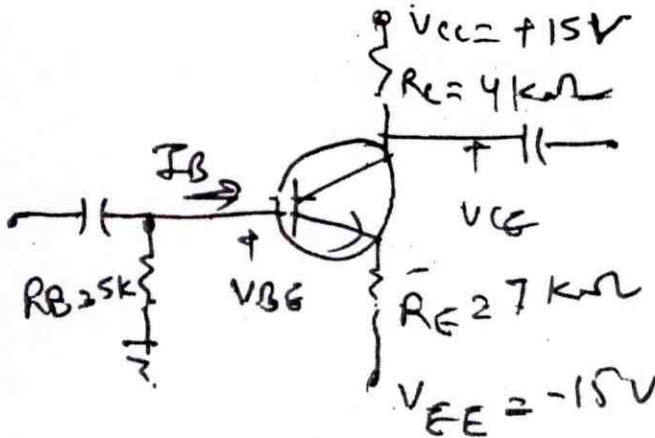 VCC = +15V
RC = 4 kΩ
IB
+
VCE
RB = 5K
+
VBE
-
RE = 7 kΩ
VEE = -15V